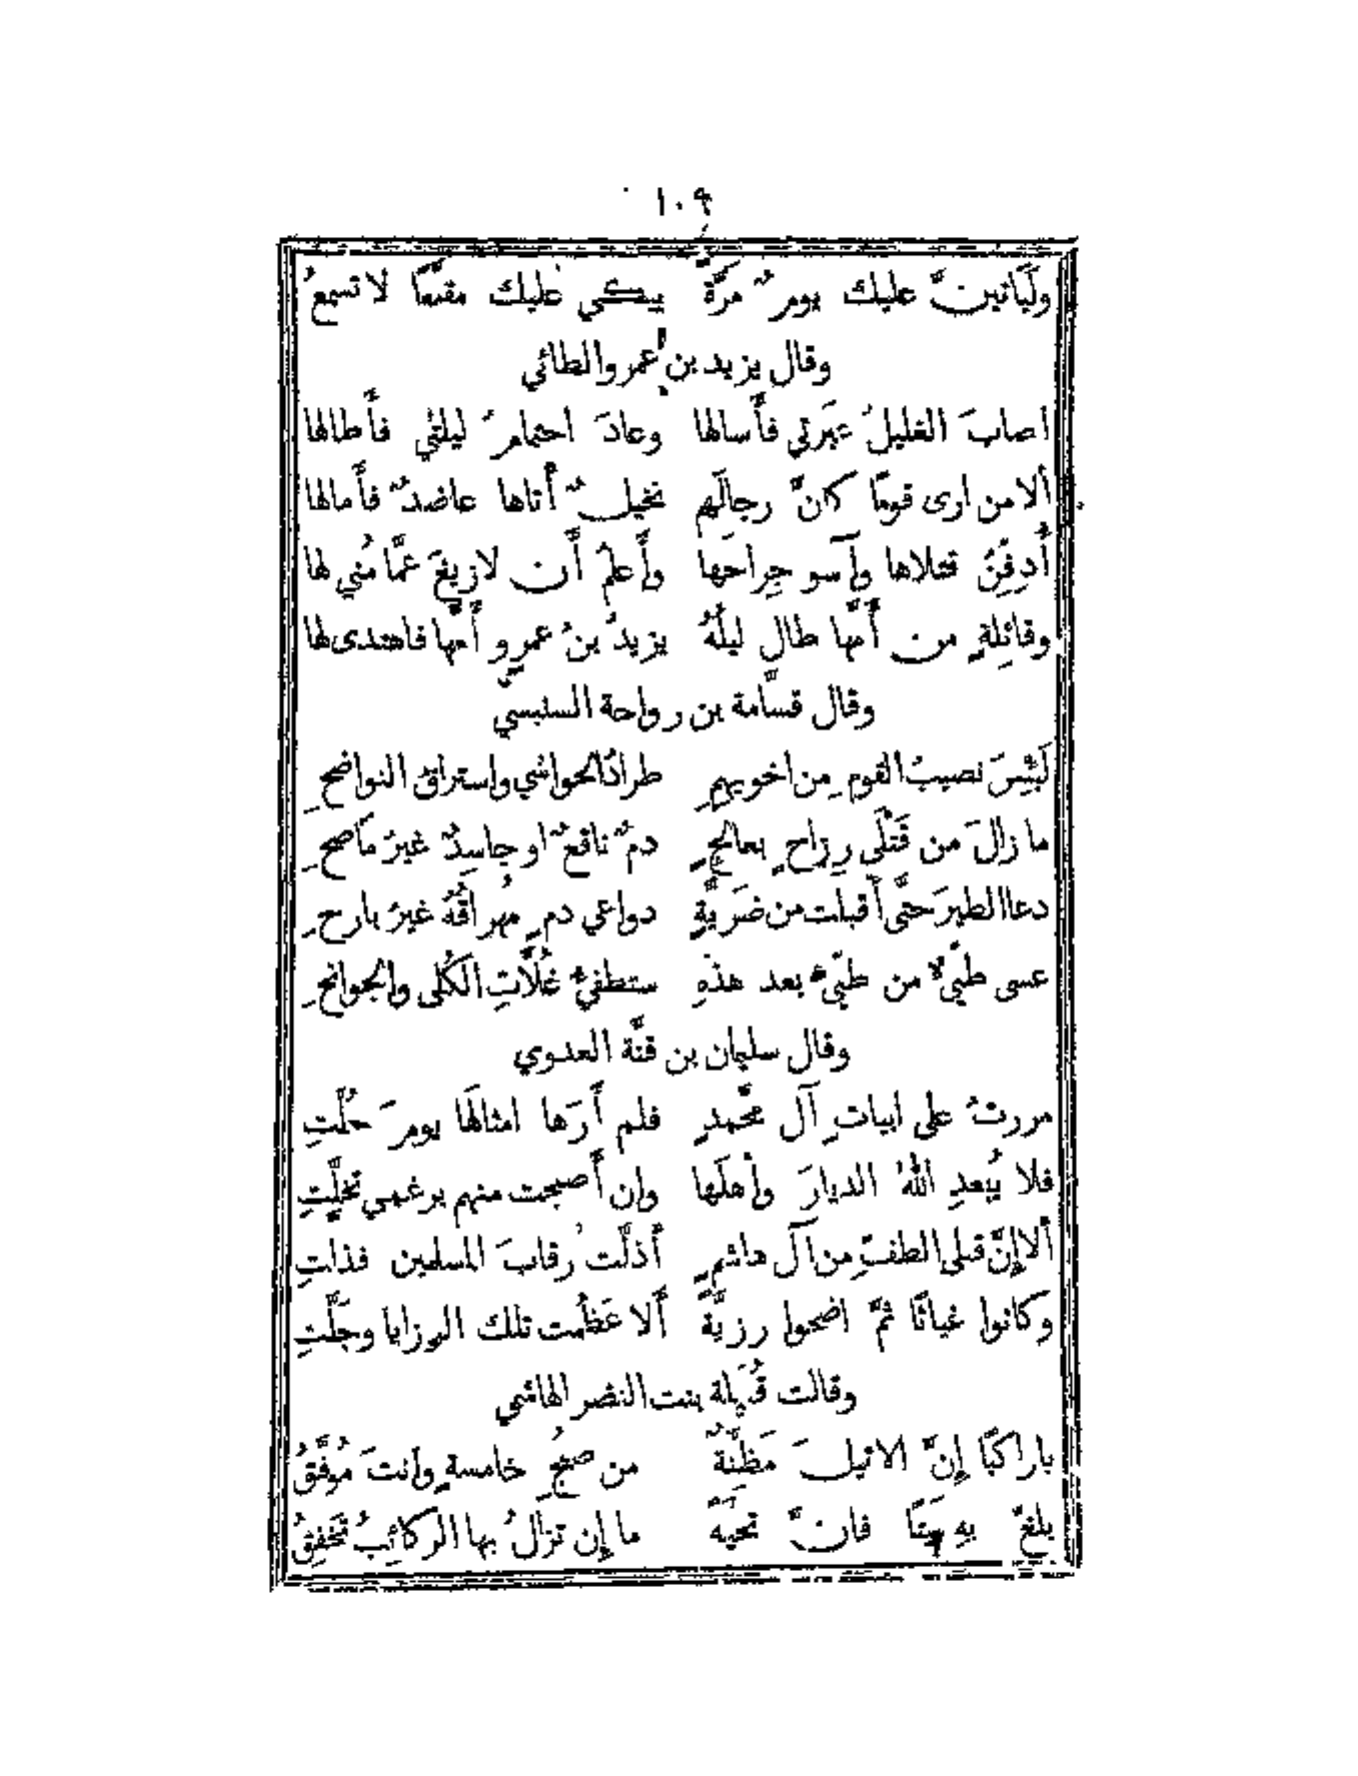 ١٠٩
ولَيَاتينَّ عليك يومٌ مرَّةً يبكي عليك مقنَّعًا لا تسمعُ
وقال يزيد بن عمرو الطائي
اصابَ الغليلُ عبَرتي فأَسالها وعادَ احتمامُ ليلتي فأَطالها
ألا من ارى قومًا كانَّ رجالَهم نخيلٌ أَتاها عاضدٌ فأَمالها
أُدفِّنُ قتلاها وآسو جِراحَها وأَعلمُ أَن لا زيغَ عمَّا مُني لها
وقائِلةٍ من أَمَّها طال ليلُهُ يزيدُ بنُ عمرٍو أَمَّها فاهتدى لها
وقال قسَّامة بن رواحة السنبسيّ
لَبِئْسَ نصيبُ القومِ من اخويهمِ طرادُ الحواشي واستراقُ النواضحِ
ما زالَ من قَتْلَى رِزاحٍ بعالجٍ دمٌ ناقعٌ او جاسِدٌ غيرُ مَاصحِ
دعا الطيرَ حتَّى أَقبلت من ضَريَّةٍ دواعي دمٍ مُهراقُهُ غيرُ بارحِ
عسى طيّئٌ من طيّئٍ بعد هذهِ ستطفئُ غُلَّاتِ الكُلى والجوانحِ
وقال سليمان بن قتَّة العدوي
مررتُ على ابياتِ آل محَّمدٍ فلم أَرَها امثالَهَا يومَ حُلَّتِ
فلا يُبعدِ اللهُ الديارَ وأَهلَها وان أَصبحت منهم برغمي تخلَّتِ
ألا إنَّ قتلى الطفِّ من آل هاشمٍ أَذلَّت رقابَ المسلمين فذلتِ
وكانوا غياثًا ثمَّ اضحوا رزيَّةً أَلا عَظُمت تلك الرزايا وجَلَّتِ
وقالت قُتَيلة بنت النضر الهاشي
ياراكبًا إِنَّ الاثيلَ مَظِنَّةٌ من صبحُِ خامسةٍ وانتَ مُوفَّقُ
بلغّ بهِ مَيتًا فانَّ تحيَّةً ما إِن تزالُ بها الركائِبُ تَخفِقُ